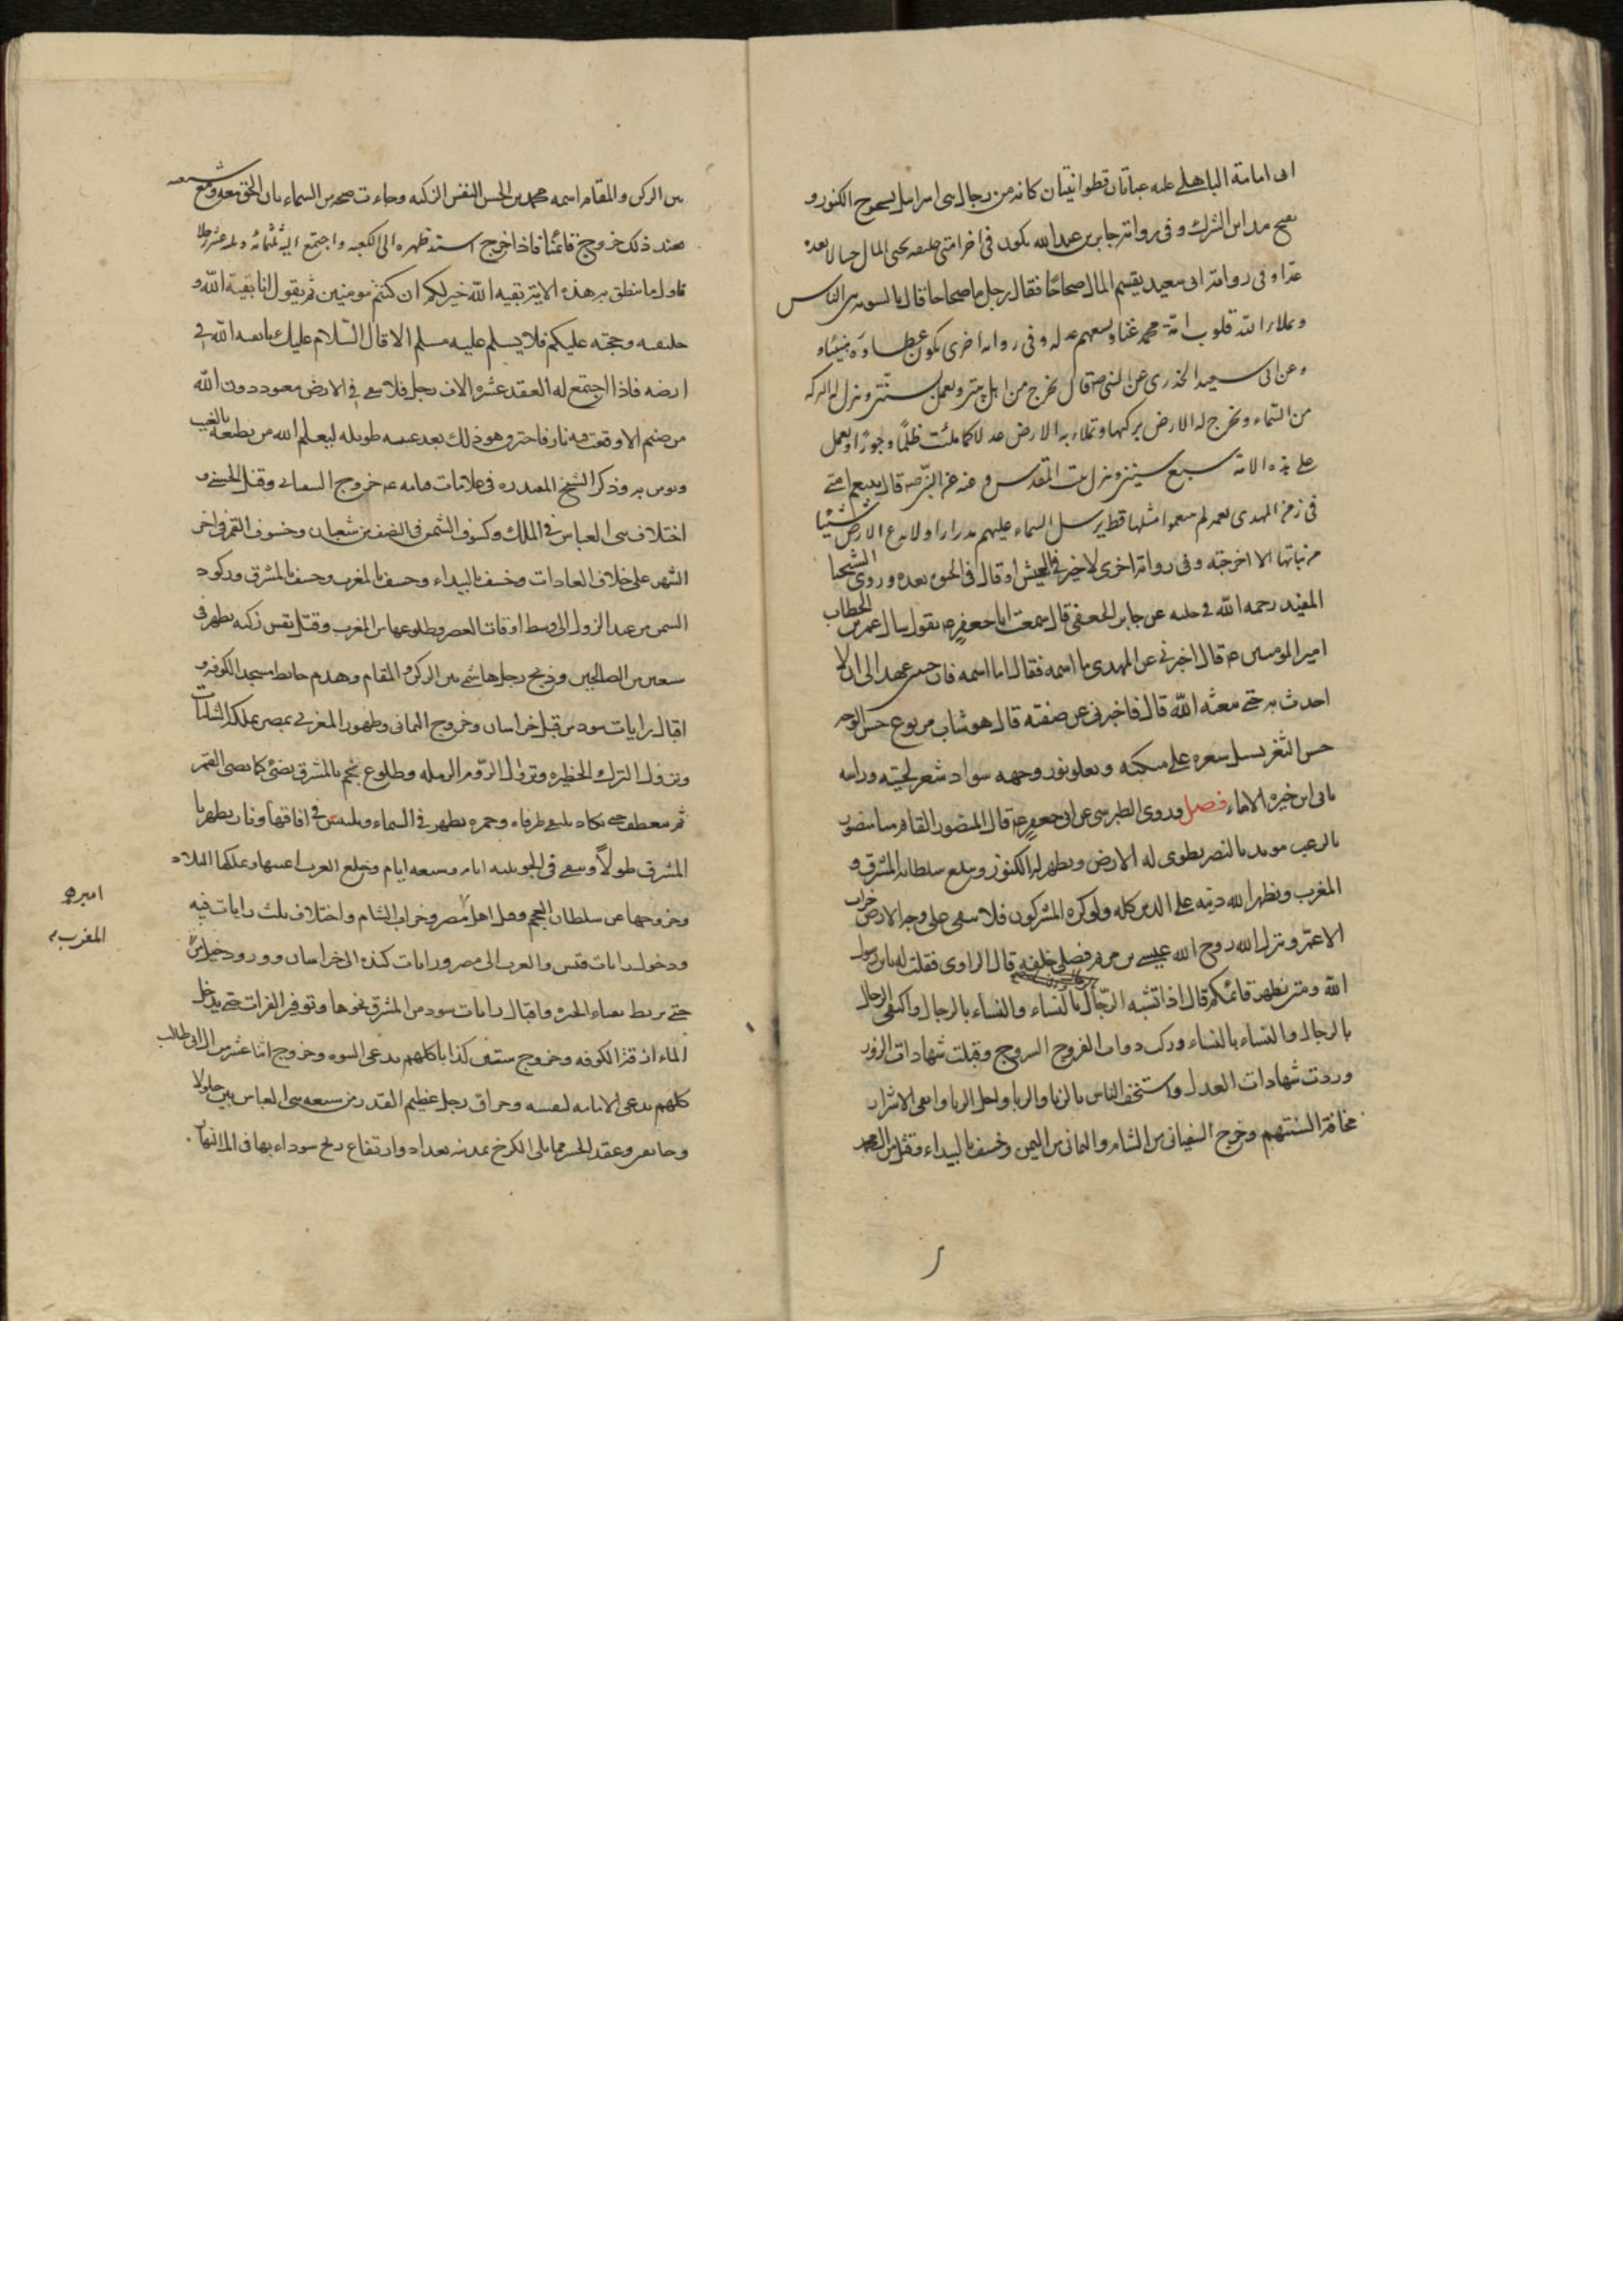 ابى امامة الباهلے عليه عباتان قطوانيتان كانه من رجال بنى اسرائيل يستخرج الكنوز و
يفتح مداين الشرك و فى رواية جابر بن عبد الله يكون فى اخر امتى خليفه يحثى المال حثيا لا يعده
عدا و فى رواية ابى سعيد يقسم المال صحاحًا فقال رجل ما صحاحا قال بالسويه بين الناس
و يملاء الله قلوب امة محمد غنا و يسعهم عدله و فى رواية اخرى يكون عطاؤه هنيئا و
و عن ابى سعيد الخدرى عن النبى ص قال يخرج من اهل بيتى و يعمل بسنتى و ينزل له البركه
من السماء و تخرج له الارض بركتها و تملاء به الارض عدلا كما ملئت ظلمًا و جورًا و يعمل
على هذه الامة سبع سنين و ينزل بيت المقدس و عنه عن النبى ص قال يتنعم امتى
فى زمن المهدى نعمه لم يتنعموا مثلها قط يرسل السماء عليهم مدرارا و لا يدع الارض شيئا
من نباتها الا اخرجته و فى رواية اخرى لا خير فى العيش او قال فى الحيوة بعده و روى الشيخ
المفيد رحمه الله فى عن جابر الجعفى قال سمعت ابا جعفر ع يقول سال عمر بن الخطاب
امير المومنين ع قال اخبرنى عن المهدى ما اسمه فقال اما اسمه فان حبيبى عهد الى ان لا
احدث به حتى يبعثه الله قال فاخبرنى عن صفته قال هو شاب مربوع حسن الوجه
حسن الثغر يسيل شعره على منكبيه و يعلو نور وجهه سواد شعر لحيته و راسه
بابى ابن خيره الاماء فصل و روى الطبرسى عن ابى جعفر ع قال المنصور القائم منا منصور
بالرعب مويد بالنصر يطوى له الارض و يظهر له الكنوز و يبلغ سلطانه المشرق و
المغرب و يظهر الله دينه على الدين كله و لو كره المشركون فلا يبقى على وجه الارض خراب
الا عمر و ينزل الله روح الله عيسى بن مريم فيصلى خلفه قال الراوى فقلت له يا بن رسول
الله و متى يظهر قائمكم قال اذا تشبه الرجال بالنساء و النساء بالرجال و اكتفى الرجال
بالرجال و النساء بالنساء و ركب ذوات الفروج السروج و قبلت شهادات الزور
و ردت شهادات العدل و استخف الناس بالزنا و الربا و اكل الربا و اتقى الاشرار
مخافة السنتهم و خرج السفيانى من الشام و اليمانى من اليمن و خسف بالبيداء و قتل من ال محمد
بين الركن و المقام اسمه محمد بن الحسن النفس الزكيه و جاءت صيحه من السماء بان الحق معه و مع شيعته
فعند ذلك خروج قائمنا فاذا خرج استند ظهره الى الكعبه و اجتمع اليه ثلثمائه و ثلثه عشر رجلا
فاول ما ينطق به هذه الاية بقيه الله خير لكم ان كنتم مومنين ثم يقول انا بقية الله و
خليفته و حجته عليكم فلا يسلم عليه مسلم الا قال السلام عليك يا بقيه الله فى
ارضه فاذا اجتمع له العقد عشره الاف رجل فلا يبقى فى الارض معبود دون الله
من صنم الا وقعت فيه نار فاحترق و هو ذلك بعد غيبه طويله ليعلم الله من يطيعه بالغيب
و يومن به و ذكر الشيخ المفيد ره فى علامات قيامه ع خروج السفيانى و قتل الحسنى و
اختلاف بنى العباس فى الملك و كسوف الشمس فى النصف من شعبان و خسوف القمر فى اخر
الشهر على خلاف العادات و خسف بالبيداء و خسف بالمغرب و خسف بالمشرق و ركود
الشمس من عند الزوال الى وسط اوقات العصر و طلوعها من المغرب و قتل نفس زكيه بظهر فى
سبعين من الصالحين و ذبح رجل هاشمى بين الركن و المقام و هدم حايط مسجد الكوفه و
اقبال رايات سود من قبل خراسان و خروج اليمانى و ظهور المغربى بمصر يملك الشامات
و نزول الترك الجزيره و نزول الروم الرمله و طلوع نجم بالمشرق يضئ كما يضى القمر
ثم ينعطف حتى يكاد يلتقى طرفاه و حمره يظهر فى السماء و يلتبس فى افاقها و نار يظهر با
المشرق طولاً و يبقى فى الجو ثلثه ايام و سبعه ايام و خلع العرب اعنتها و تملكها البلاد
و خروجها عن سلطان العجم و قتل اهل مصر و خراب الشام و اختلاف ثلث رايات فيه
و دخول رايات قيس و العرب الى مصر و رايات كنده الى خراسان و ورود خيل من
حتى يربط بفناء الحيره و اقبال رايات سود من المشرق نحوها و توفير الفرات حتى يدخل
الماء ازقة الكوفه و خروج ستين كذابا كلهم يدعى النبوه و خروج اثنا عشر من ال ابى طالب
كلهم يدعى الامامه لنفسه و حراق رجل عظيم القدر من شيعه بنى العباس بين جلولا
و خانقين و عقد الجسر مما يلى الكرخ بمدينه بغداد و ارتفاع ريح سوداء بها فى اول النهار
اميرهم
المغرب